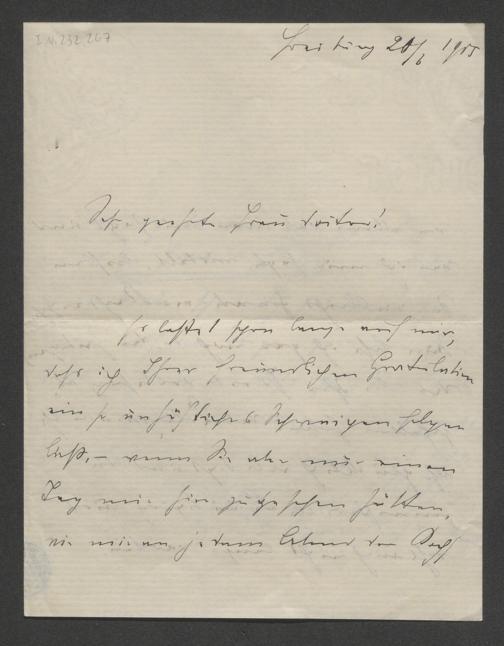 I.N. 232.267
Freiburg 20/6 1905
Sehr geehrte Frau Doktor!
Es lastet schon lange auf mir,
dass ich Ihrer freundlichen Gratulation
ein so unhöfliches Schweigen folgen
ließ, – wenn Sie aber nur einen
Tag mir hier zugesehen hätten,
wie mir an jedem Abend der Kopf